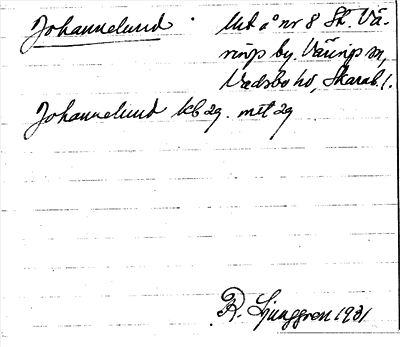 Johannelund. Utb å nr 8 St. Vä-
rings by. Värings sn,
Vadsbo hd, Skarab. l.
Johannelund kb 29. mtl 29
R. Ljunggren 1931